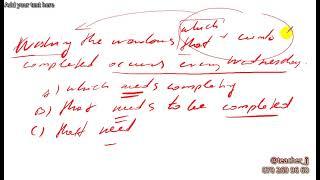 Add your text here
which
Washing the windows that + comb
completed occurs every Wednesday.
A) which needs completing
B) that needs to be completed
C) that need
@teacher_jj